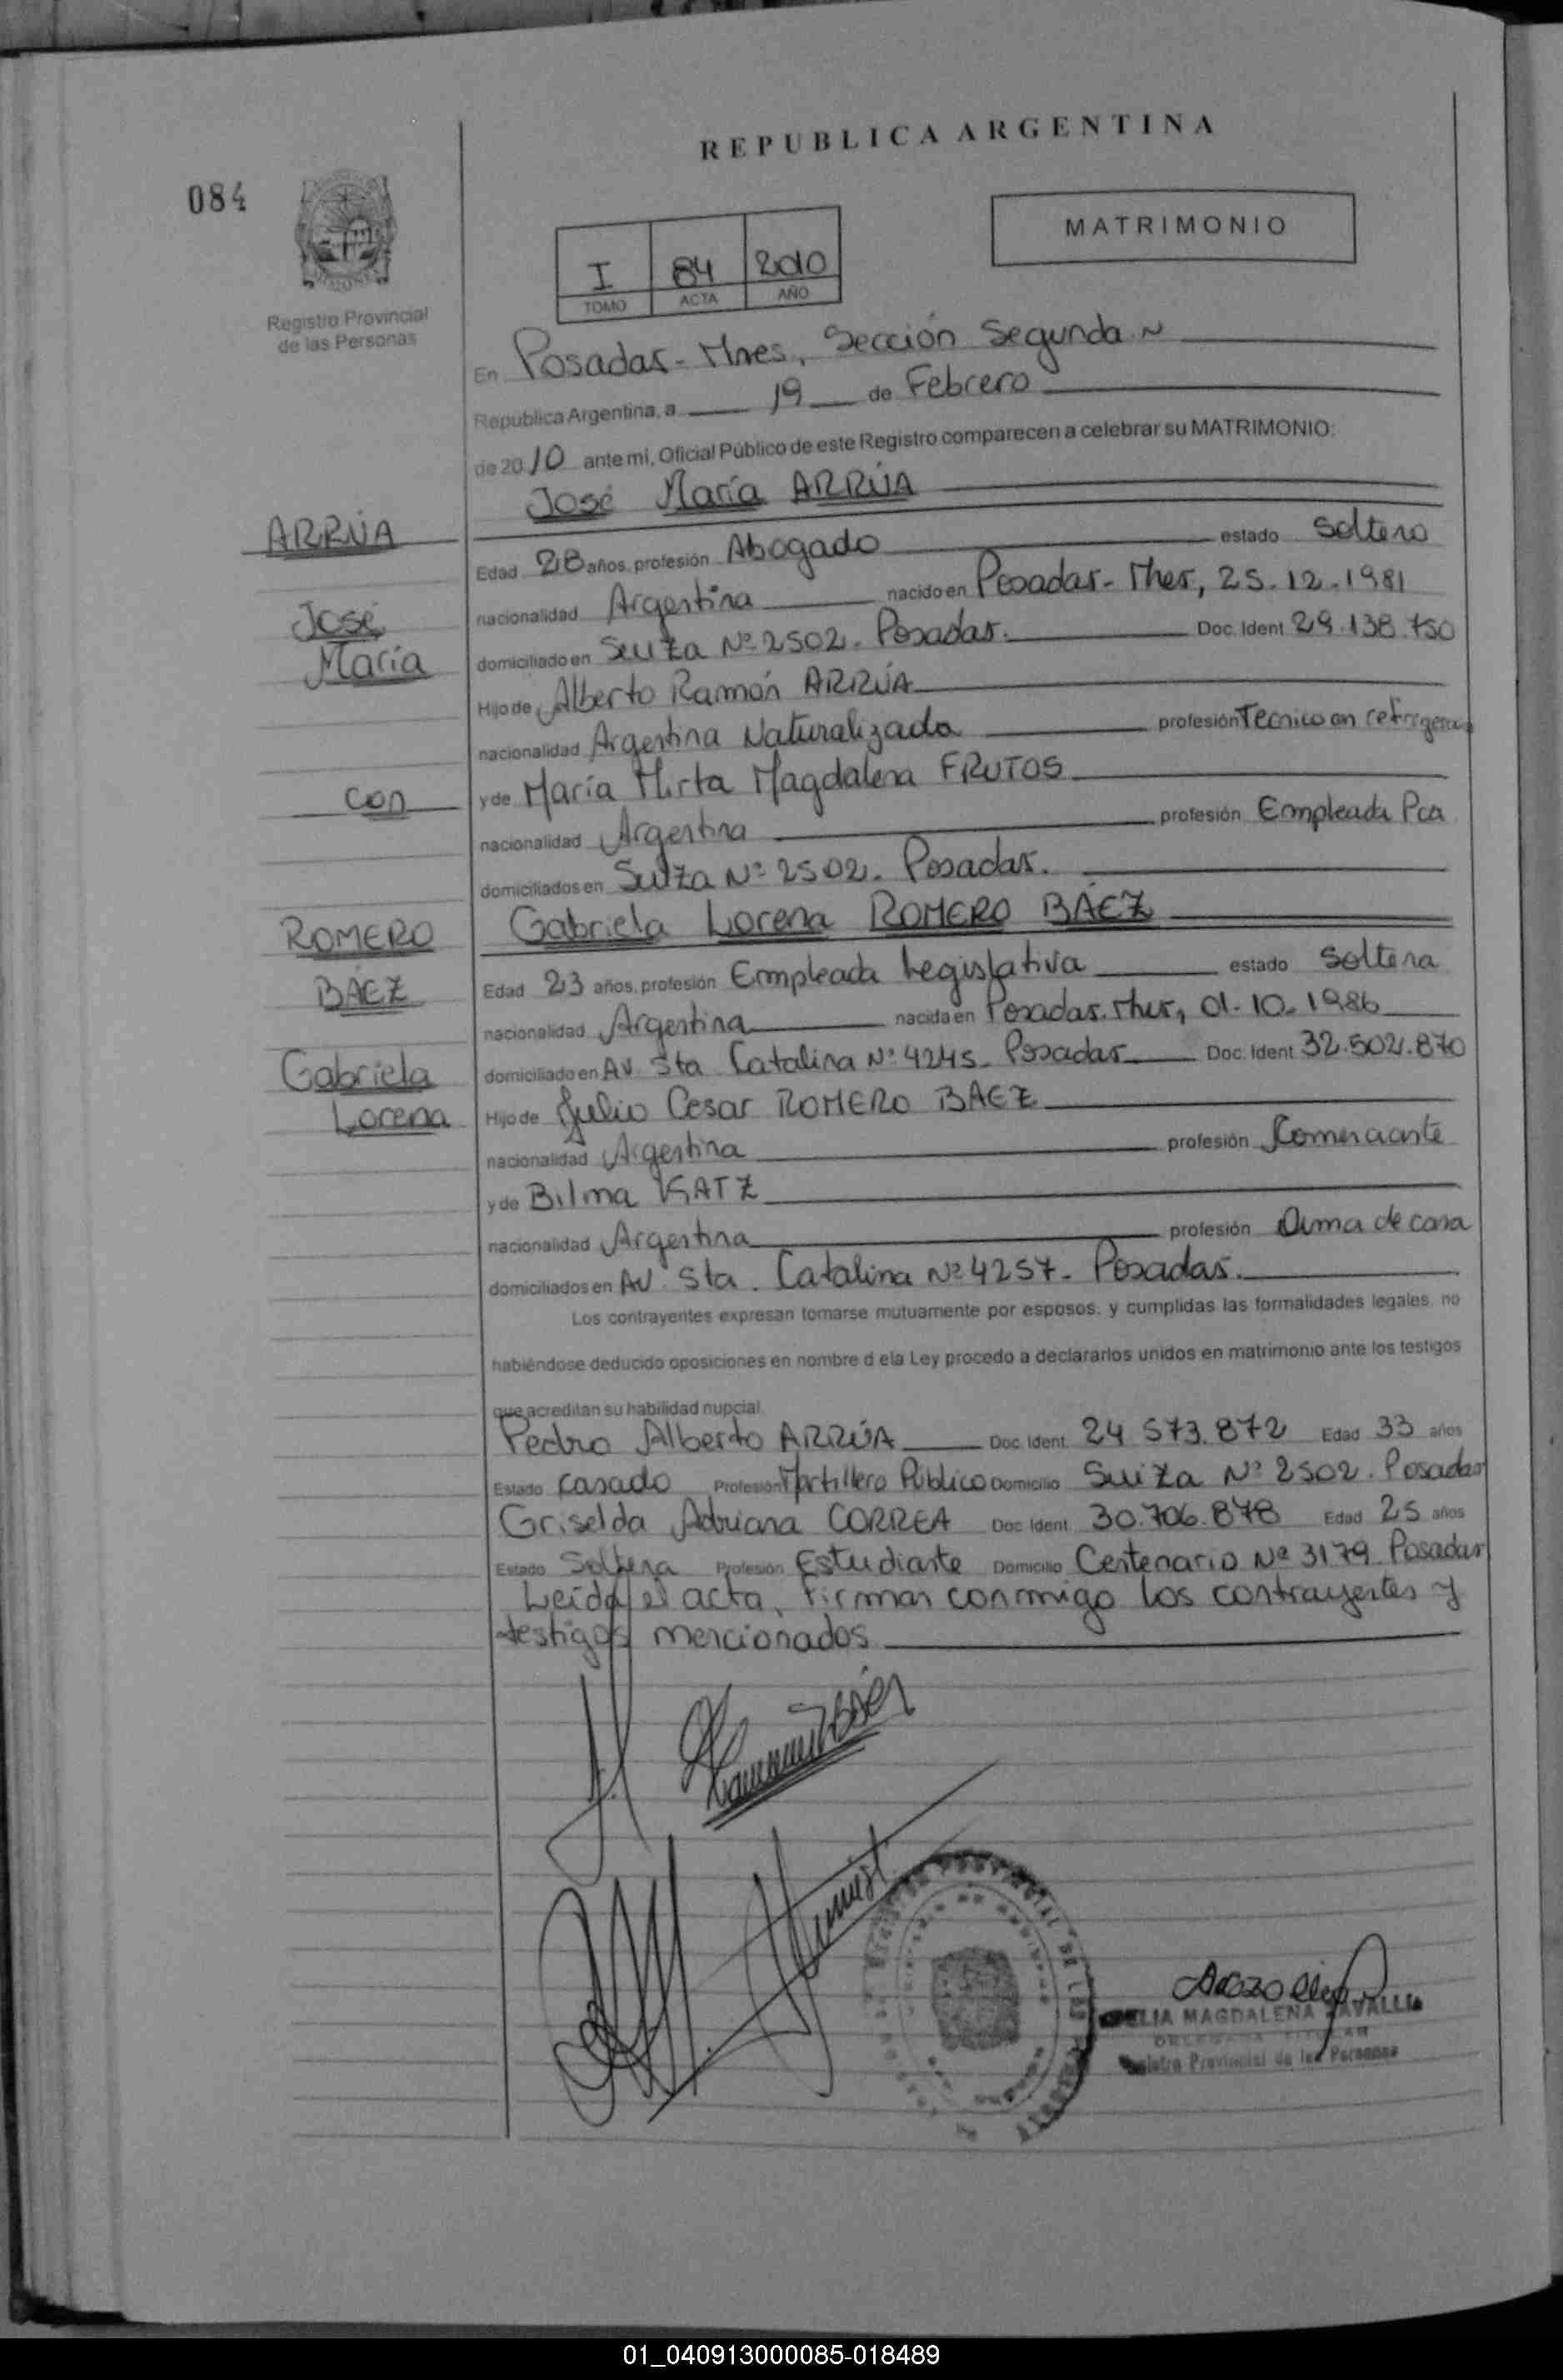 REPUBLICA ARGENTINA
084
MATRIMONIO
I 84 2010
TOMO ACTA AÑO
Registro Provincial
de las Personas
En Posadas - Mnes, Sección Segunda.~
Republica Argentina, a 19 de Febrero
de 2010 ante mi, Oficial Público de este Registro comparecen a celebrar su MATRIMONIO:
José María ARRÚA
ARRÚA
Edad 28 años, profesión Abogado estado Soltero
José
María
nacionalidad Argentina nacido en Posadas - Mnes, 25-12-1981
domiciliado en Suiza Nº 2502. Posadas. Doc. Ident 29.138.750
Hijo de Alberto Ramón ARRÚA
nacionalidad Argentina Naturalizada profesión Tecnico en refrigerac
con
y de María Mirta Magdalena FRUTOS
nacionalidad Argentina profesión Empleada Pca
domiciliados en Suiza Nº 2502. Posadas.
ROMERO
BÁEZ
Gabriela Lorena ROMERO BÁEZ
Edad 23 años, profesión Empleada Legislativa estado Soltera
nacionalidad Argentina nacida en Posadas. Mnes, 01-10-1986
Gabriela
Lorena
domiciliado en Av. Sta Catalina Nº 4245- Posadas Doc. Ident 32.502.870
Hijo de Julio Cesar ROMERO BAEZ
nacionalidad Argentina profesión Comerciante
y de Bilma KATZ
nacionalidad Argentina profesión Ama de casa
domiciliados en Av. Sta. Catalina Nº 4257- Posadas.
Los contrayentes expresan tomarse mutuamente por esposos, y cumplidas las formalidades legales, no
habiéndose deducido oposiciones en nombre d ela Ley procedo a declararlos unidos en matrimonio ante los testigos
que acreditan su habilidad nupcial.
Pedro Alberto ARRÚA Doc. Ident 24 573.872 Edad 33 años
Estado Casado Profesión Martillero Público Domicilio Suiza Nº 2502. Posadas
Griselda Adriana CORREA Doc Ident. 30.706.878 Edad 25 años
Estado Soltera Profesión Estudiante Domicilio Centenario Nº 3179 Posadas
Leída el acta, firman conmigo los contrayentes y
testigos mencionados
MAGDALENA
Registro Provincial de las Personas
01_040913000085-018489